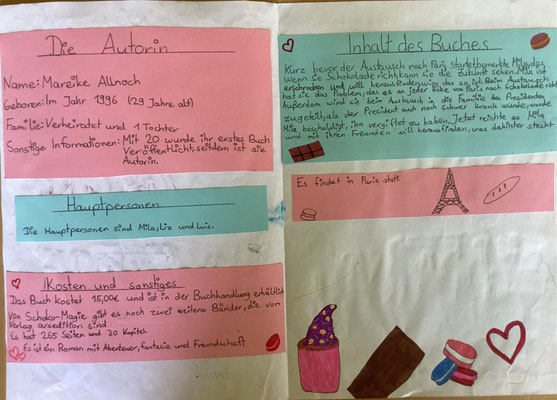 Die Autorin
Name: Mareike Allnoch
Geboren: Im Jahr 1996 (29 Jahre alt)
Familie: Verheiratet und 1 Tochter
Sonstige Informationen: Mit 20 wurde ihr erstes Buch
Veröffentlicht, seitdem ist sie
Autorin.
Hauptpersonen
Die Hauptpersonen sind Mila, Liz und Luis.
Kosten und sonstiges
Das Buch kostet 15,00€ und ist in der Buchhandlung erhältlich
Von Schoko-Magie gibt es noch zwei weitere Bänder, die von
Verlag arsedition sind
Es hat 265 Seiten und 30 Kapitel
Es ist ein Roman mit Abenteuer, fantasie und Freundschaft
Inhalt des Buches
Kurz bevor der Austausch nach Paris startet, bemerkte Mila, das
wenn sie Schokolade riecht kann sie die Zukunft sehen. Mila ist
erschrocken und will herausfinden, wieso das so ist. Beim Austausch
hat sie das Problem, das es an jeder Ecke von Paris nach Schokolade riecht
Außerdem wird sie beim Austausch in die Familie des Presidenten
zugeteilt, als der President auch noch schwer krank wurde, wurde
Mila beschuldigt, ihn vergiftet zu haben. Jetzt reichte es Mila
und mit ihren Freunden will herausfinden, was dahinter steckt
Es findet in Paris statt